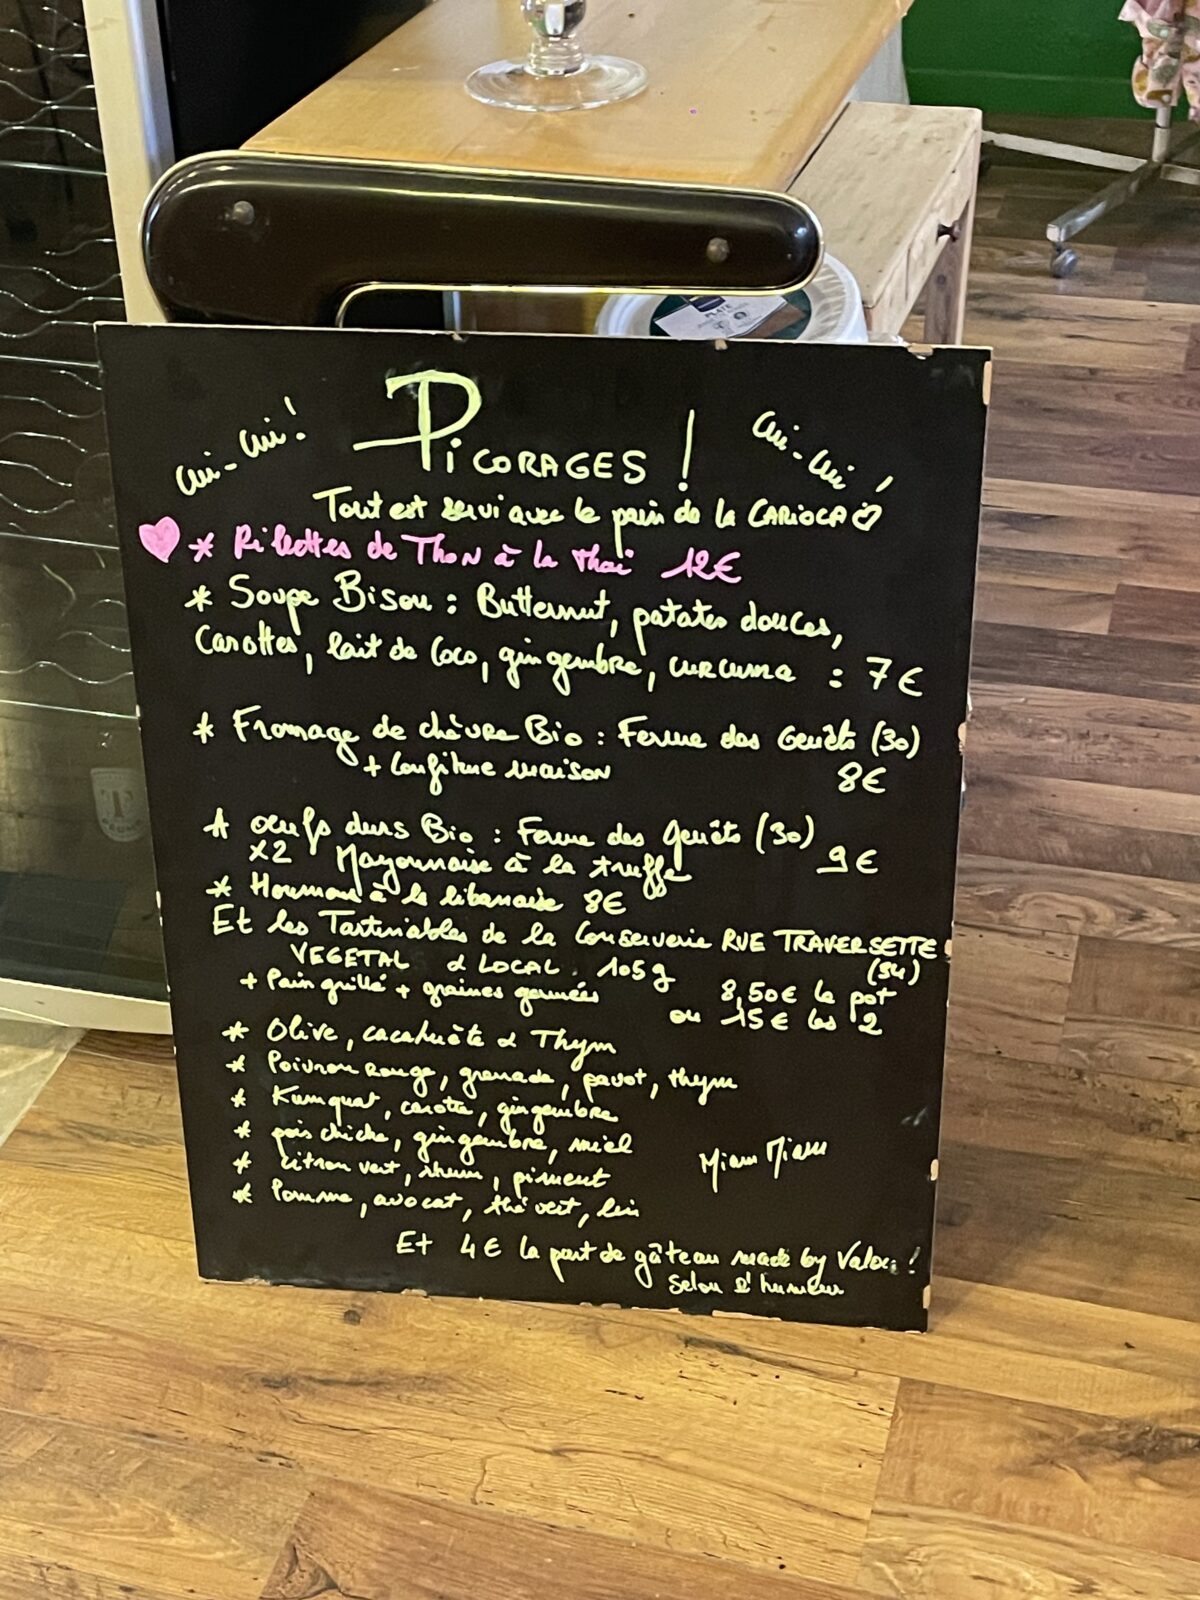 cui-cui!
PICORAGES!
cui-cui!
Tout est servi avec le pain de la CARIOCA
* Rillettes de Thon à la thaï 12€
* Soupe Bisou : Butternut, patates douces,
Carottes, lait de Coco, gingembre, curcuma : 7€
* Fromage de chèvre Bio : Ferme des Genêts (30)
+ Confiture maison 8€
* œufs durs Bio : Ferme des Genêts (30)
x2 Mayonnaise à la truffe 9€
* Houmous à la libanaise 8€
Et les Tartinables de la Conserverie RUE TRAVERSETTE
VEGETAL & LOCAL. 105g (34)
+ Pain grillé + graines germées 8,50€ le pot
ou 15€ les 2
* Olive, cacahuète & Thym
* Poivron rouge, grenade, pavot, thym
* Kumquat, carotte, gingembre
* pois chiche, gingembre, miel
* citron vert, rhum, piment
Miam Miam
* Pomme, avocat, thé vert, lin
Et 4€ la part de gâteau made by !
Selon l'humeur
PLATE